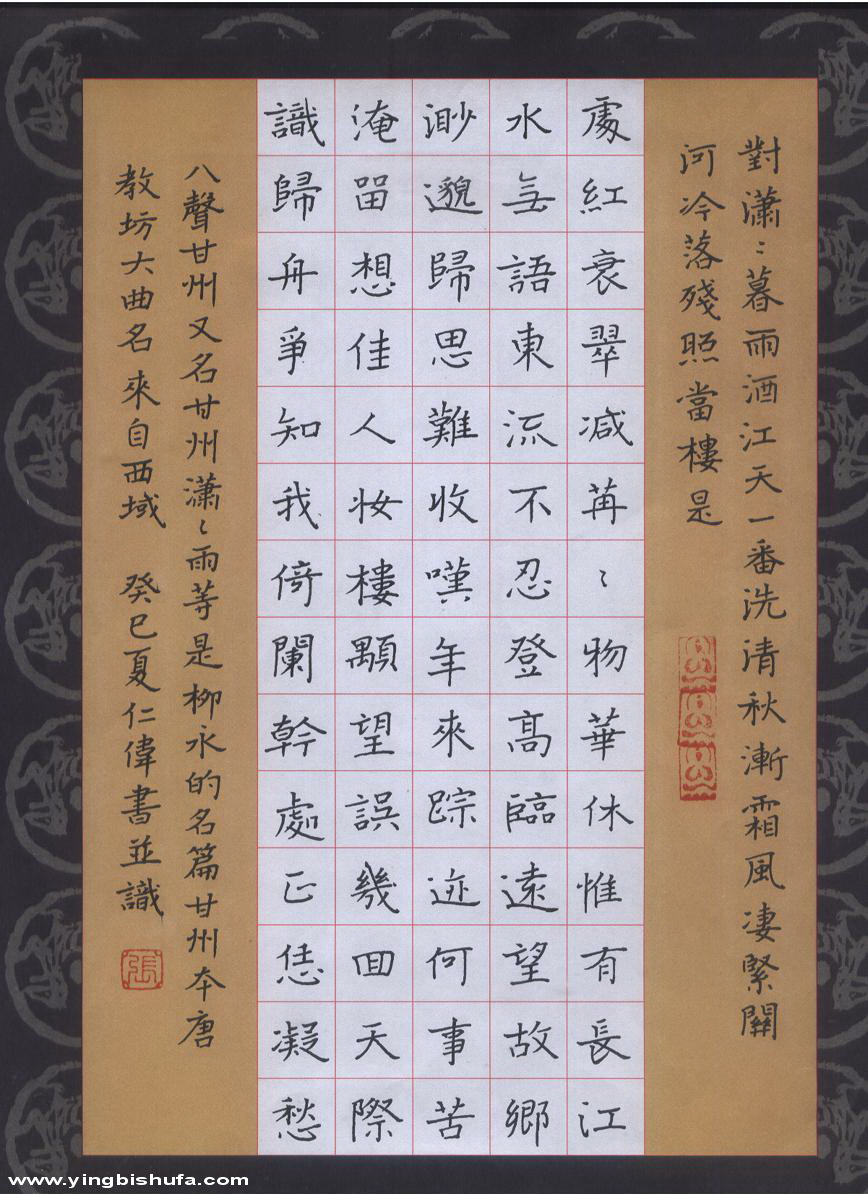 對瀟〻暮雨洒江天一番洗清秋漸霜風凄緊關
河冷落殘照當樓是
處紅衰翠减苒〻物華休惟有長江
水無語東流不忍登高臨遠望故鄉
渺邈歸思難收嘆年來踪迹何事苦
淹留想佳人妆樓顒望誤幾囬天際
識歸舟爭知我倚闌幹處正恁凝愁
八聲甘州又名甘州瀟〻雨等是柳永的名篇甘州夲唐
教坊大曲名來自西域 癸巳夏仁偉書並識
張
www.yingbishufa.com